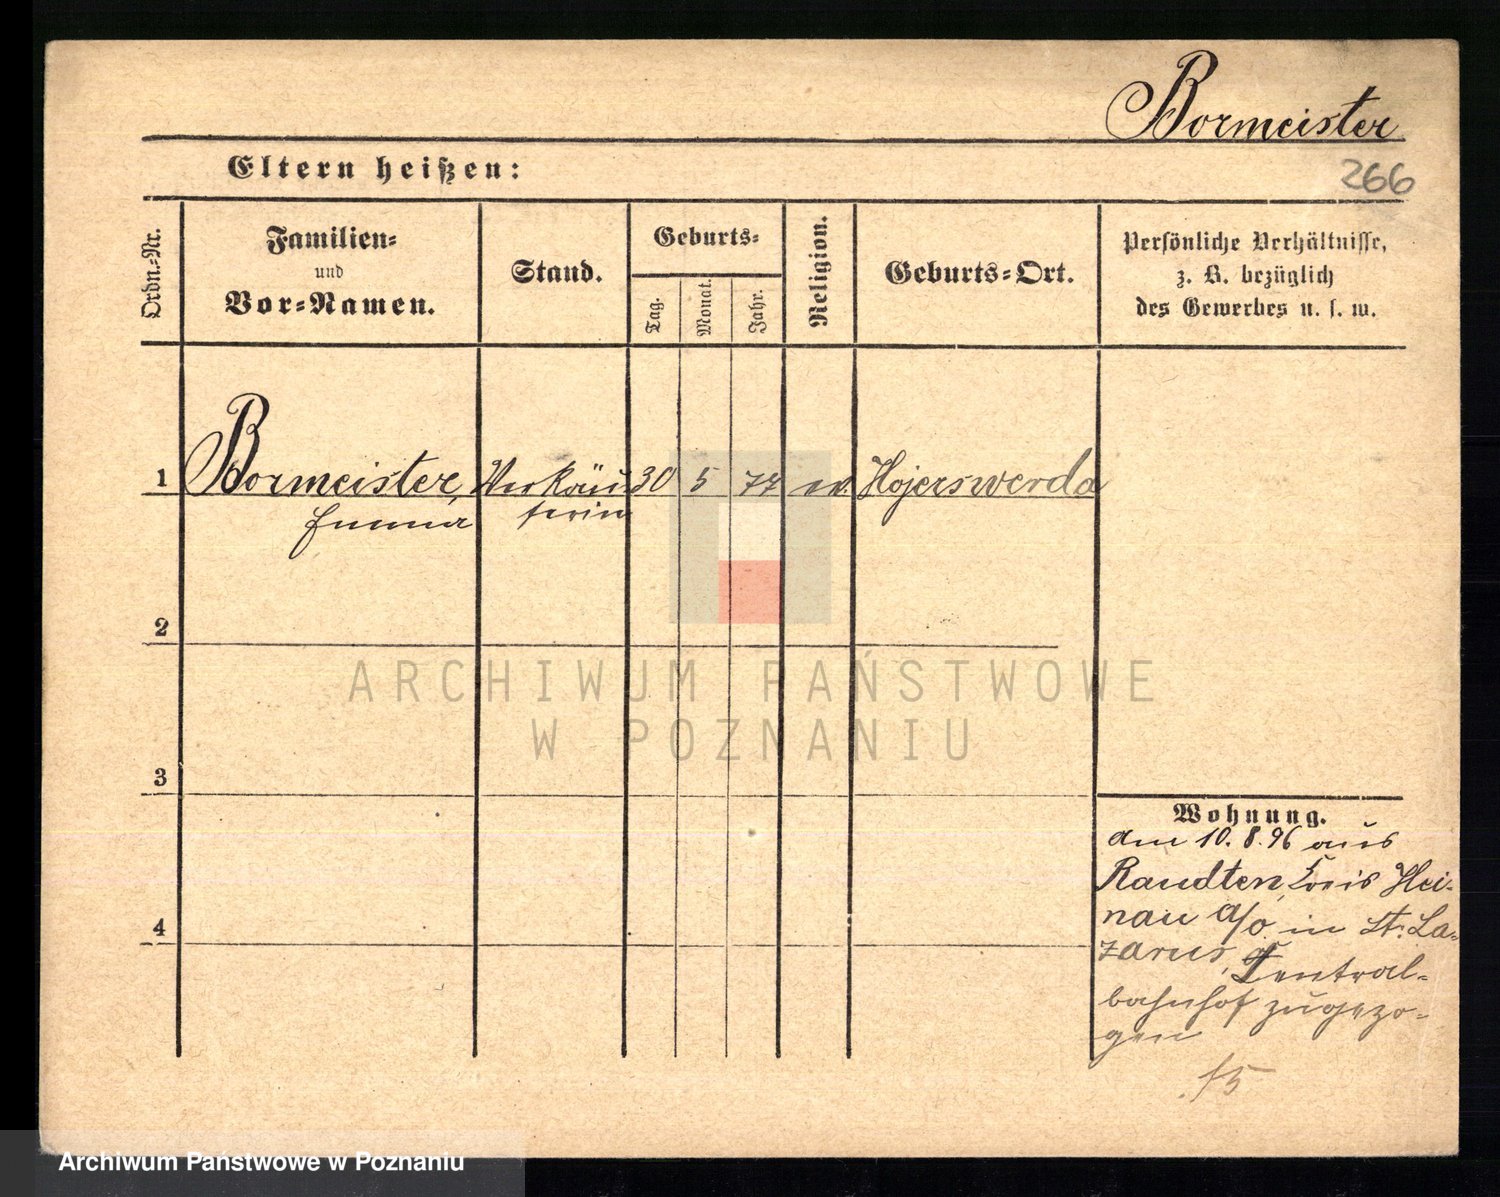 Bormeister
266
Eltern heißen:
Ordn.-Nr.
Familien-
und
Vor-Namen.
Stand.
Geburts-
Tag.
Monat.
Jahr.
Religion.
Geburts-Ort.
Persönliche Verhältnisse,
z. B. bezüglich
des Gewerbes u. s. w.
1 Bormeister, Verkäu- 30 5 77 ev. Hojerswerda
Emma ferin
2
ARCHIWUM PAŃSTWOWE
W POZNANIU
3
Wohnung.
Am 10. 8. 96 aus
Raudten, Kreis Hei-
nau a/o in St. La-
4
zarus, Central-
bahnhof zugezo-
gen
Archiwum Państwowe w Poznaniu